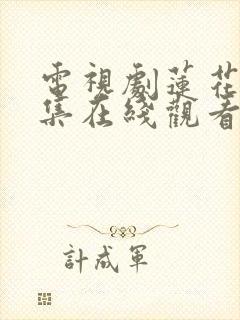 電視劇蓮花
集在綫觀看
計成軍